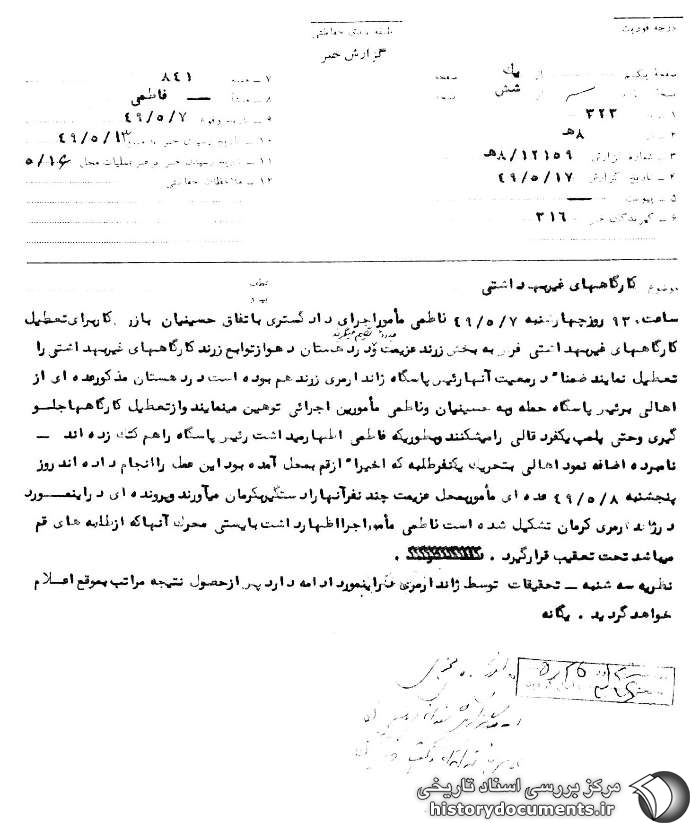 درجه فوریت
طبقه بندی حفاظتی
گزارش خبر
صفحه یکم از یک صفحه
نسخه از شش نسخه
۳۲۳
۸هـ
۳ ـ شماره گزارش ۸/۱۲۱۵۹هـ
۴ ـ تاریخ گزارش ۴۹/۵/۱۷
۵ ـ پیوست ـــ
۶ ـ گیرندگان خبر ۳۱۶
۷ ـ ۸۴۱
۸ ـ منشأ ـــ فاطمی
۹ ـ تاریخ وقوع ۴۹/۵/۷
۱۰ ـ تاریخ رسیدن خبر ۴۹/۵/۱۳
۱۱ ـ تاریخ رسیدن خبر برهبر عملیات محل ۵/۱۶
۱۲ ـ ملاحظات حفاظتی
موضوع کارگاههای غیربهداشتی
عطف
پیرو
ساعت روزچهارشنبه ۴۹/۵/۷ فاطمی مأموراجرای دادگستری باتفاق حسینیان بازر کاربرای تعطیل
کارگاههای غیربهداشتی فرش به بخش زرند عزیمت ودردهستان د هوازتوابع زرند کارگاههای غیربهداشتی را
تعطیل نمایند ضمنا" درمعیت آنهارئیس پاسگاه ژاندارمری زرند هم بوده است دردهستان مذکورعده ای از
اهالی برئیس پاسگاه حمله وبه حسینیان وفاطمی مأمورین اجرائی توهین مینمایند وازتعطیل کارگاههاجلــو
گیری وحتی پلمپ یکفرد قالی رامیشکنند وبطوریکه فاطمی اظهارمیداشت رئیس پاسگاه راهم کتک زده اند ـــ
نامبرده اضافه نمود اهالی بتحریک یکنفرطلبه که اخیرا" ازقم بمحل آمده بود این عمل راانجام داده اند روز
پنجشنبه ۴۹/۵/۸ عده ای مأموربمحل عزیمت چند نفرآنهارادستگیربکرمان میآورند وپرونده ای دراینمــورد
درژاندارمری کرمان تشکیل شده است فاطمی مأموراجرااظهارداشت بایستی محرک آنهاکه ازطلبه های قم
میباشد تحت تعقیب قرارگیرد .
نظریه سه شنبه ـــ تحقیقات توسط ژاندارمری دراینمورد ادامه دارد پس ازحصول نتیجه مراتب بموقع اعــلام
خواهد گردید . یگانه
مرکز بررسی اسناد تاریخی
historydocuments.ir